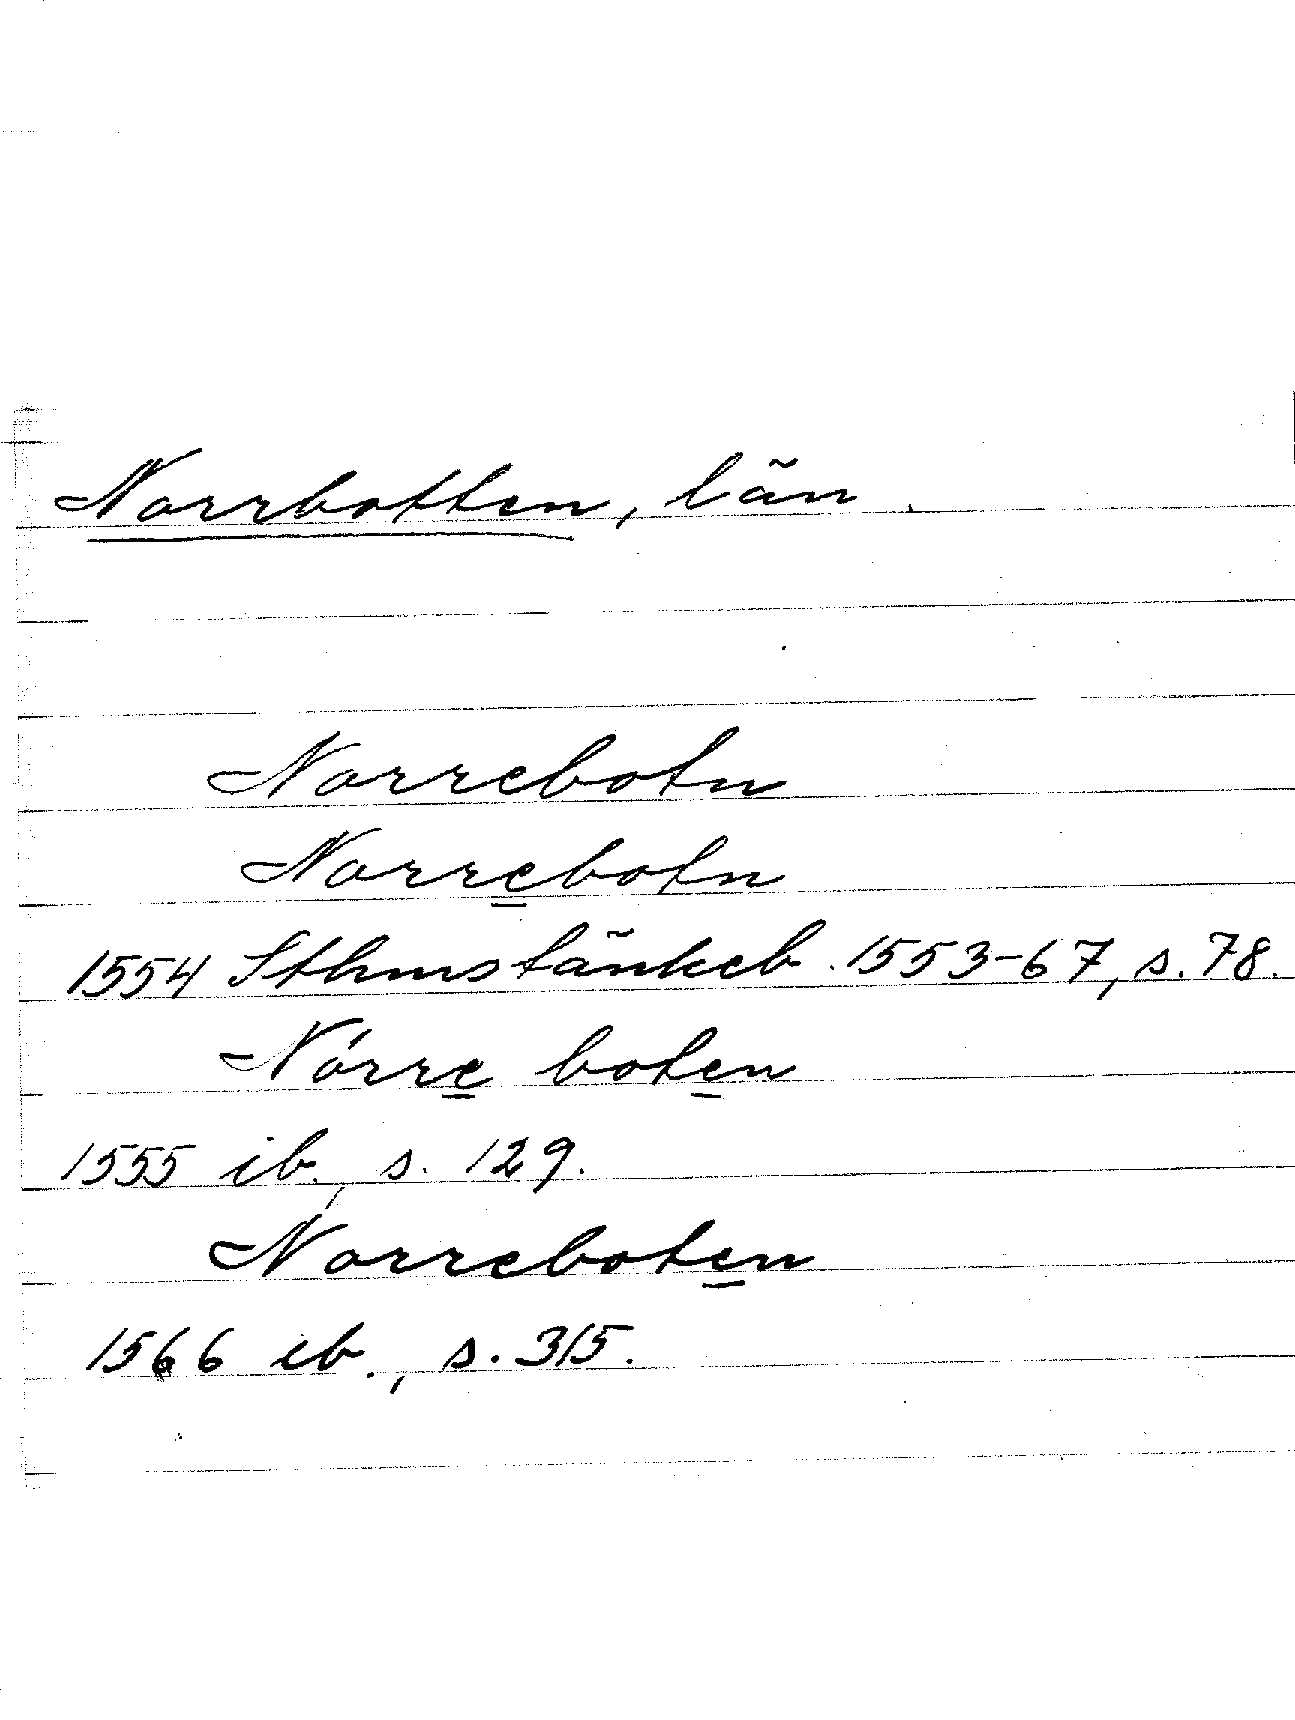 Norrbotten, län
Norrebotn
Norrebotn
1554 Sthmstänkeb. 1553-67, s. 78.
Nórre boten
1555 ib., s. 129.
Norreboten
1566 ib., s. 315.